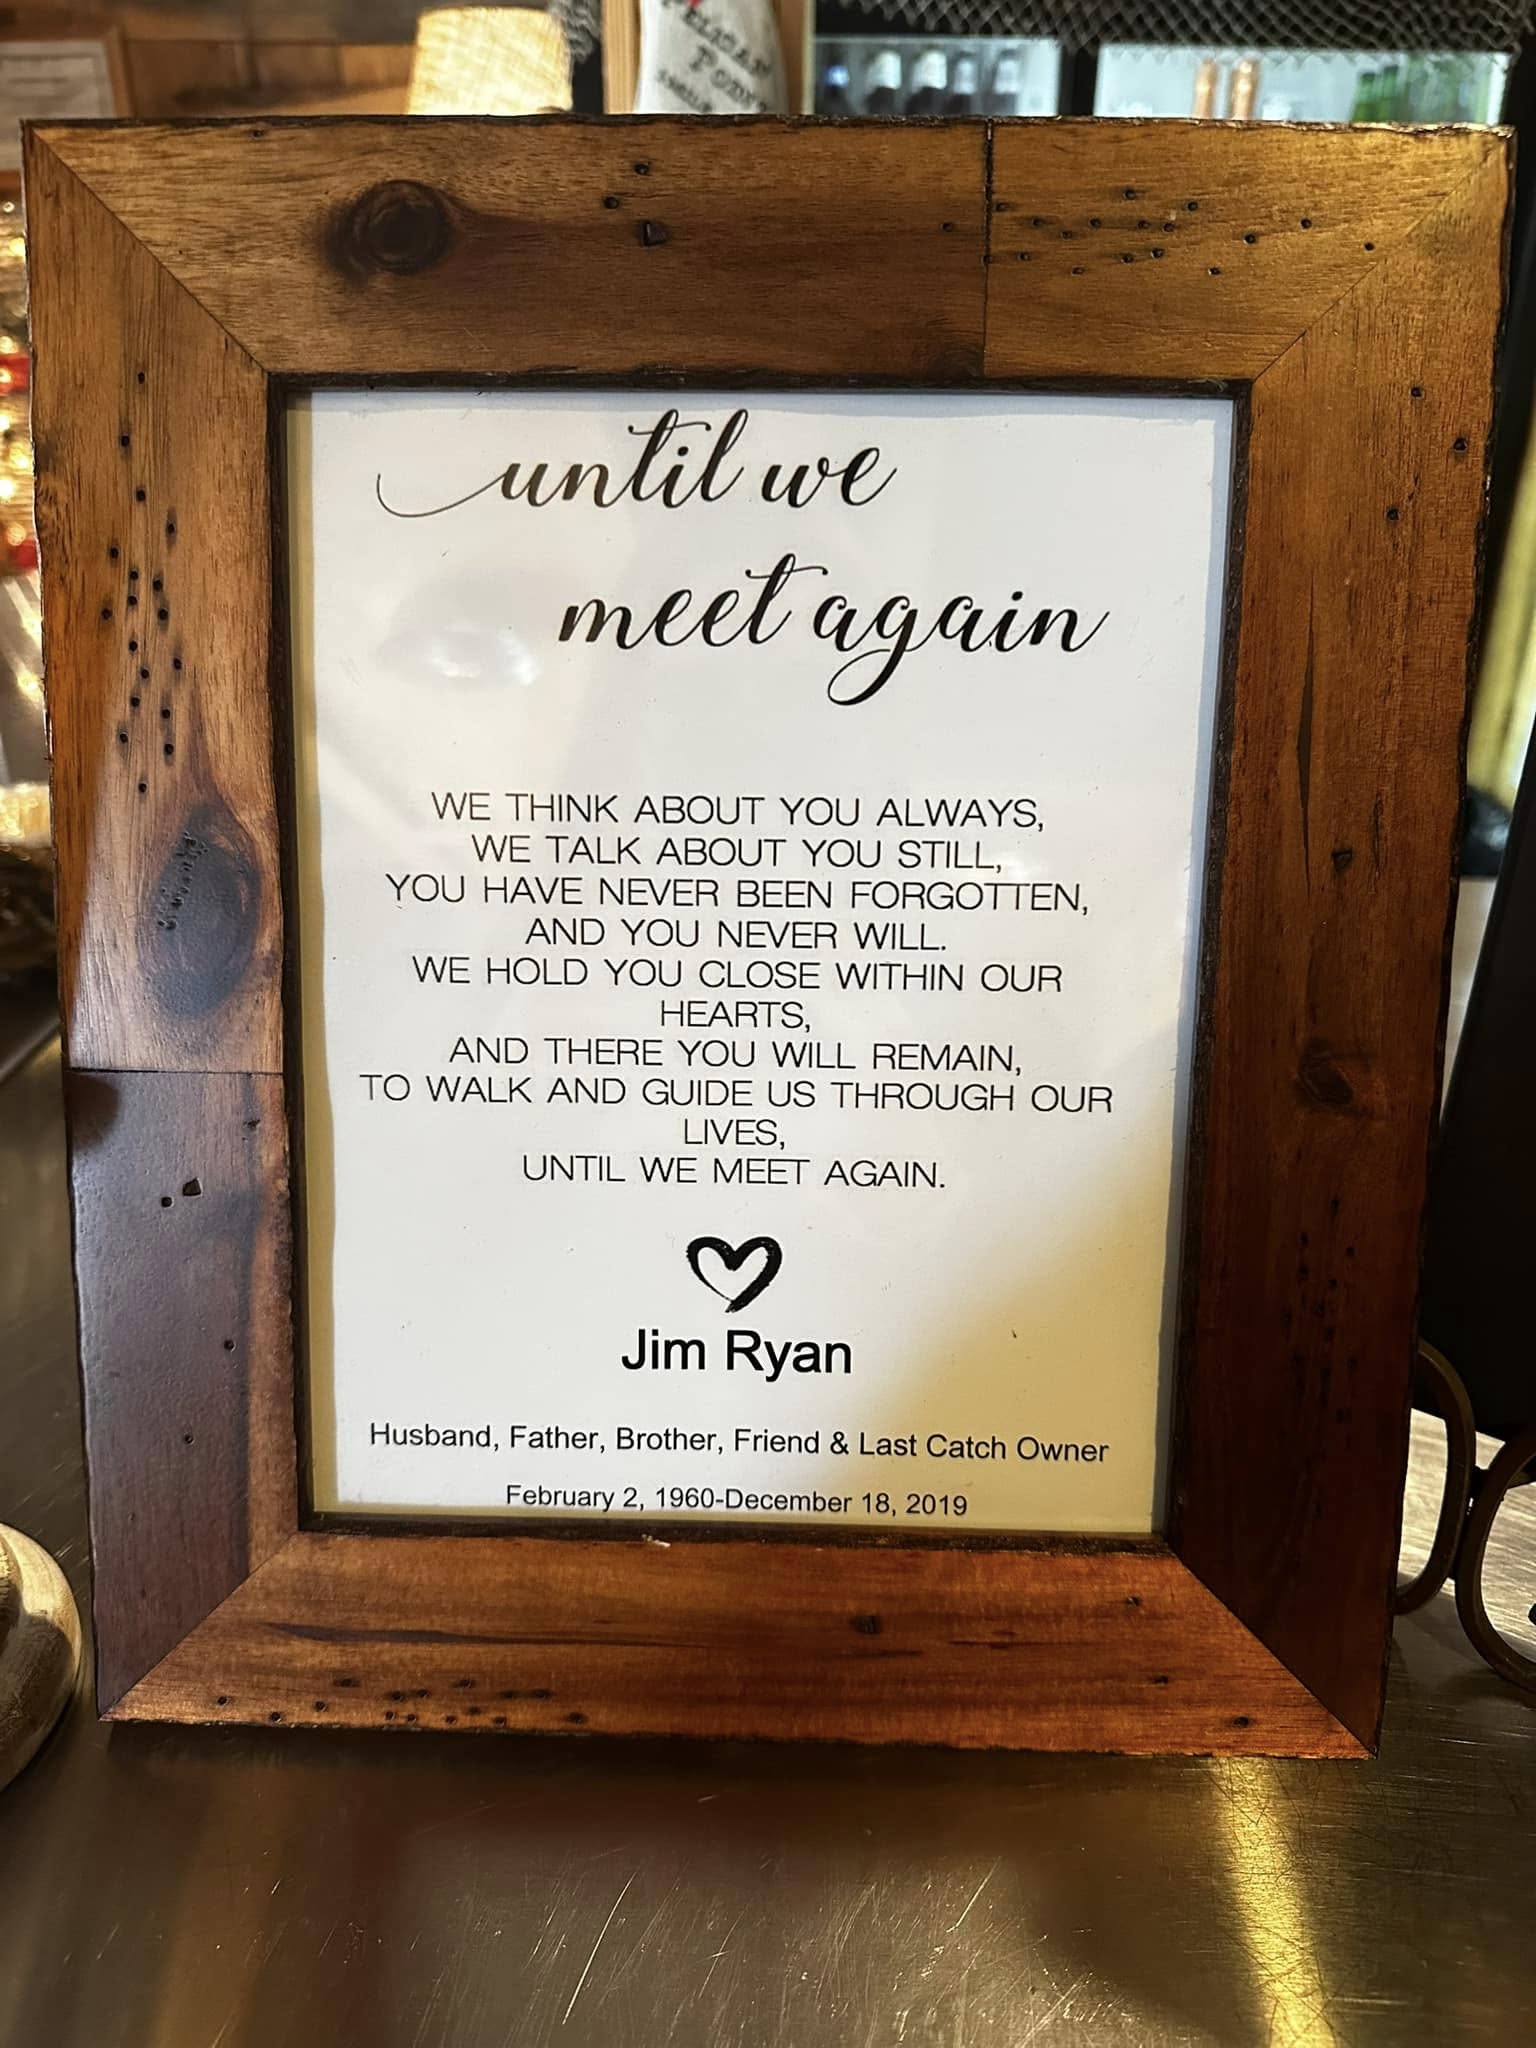 until we
meet again
WE THINK ABOUT YOU ALWAYS,
WE TALK ABOUT YOU STILL,
YOU HAVE NEVER BEEN FORGOTTEN,
AND YOU NEVER WILL.
WE HOLD YOU CLOSE WITHIN OUR
HEARTS,
AND THERE YOU WILL REMAIN,
TO WALK AND GUIDE US THROUGH OUR
LIVES,
UNTIL WE MEET AGAIN.
Jim Ryan
Husband, Father, Brother, Friend & Last Catch Owner
February 2, 1960-December 18, 2019